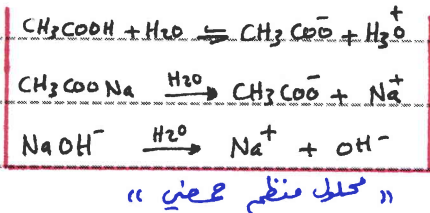 CH3COOH + H2O ⇌ CH3COO⁻ + H3O⁺
CH3COONa H2O→ CH3COO⁻ + Na⁺
NaOH⁻ H2O→ Na⁺ + OH⁻
"محلول منظم حمضي"